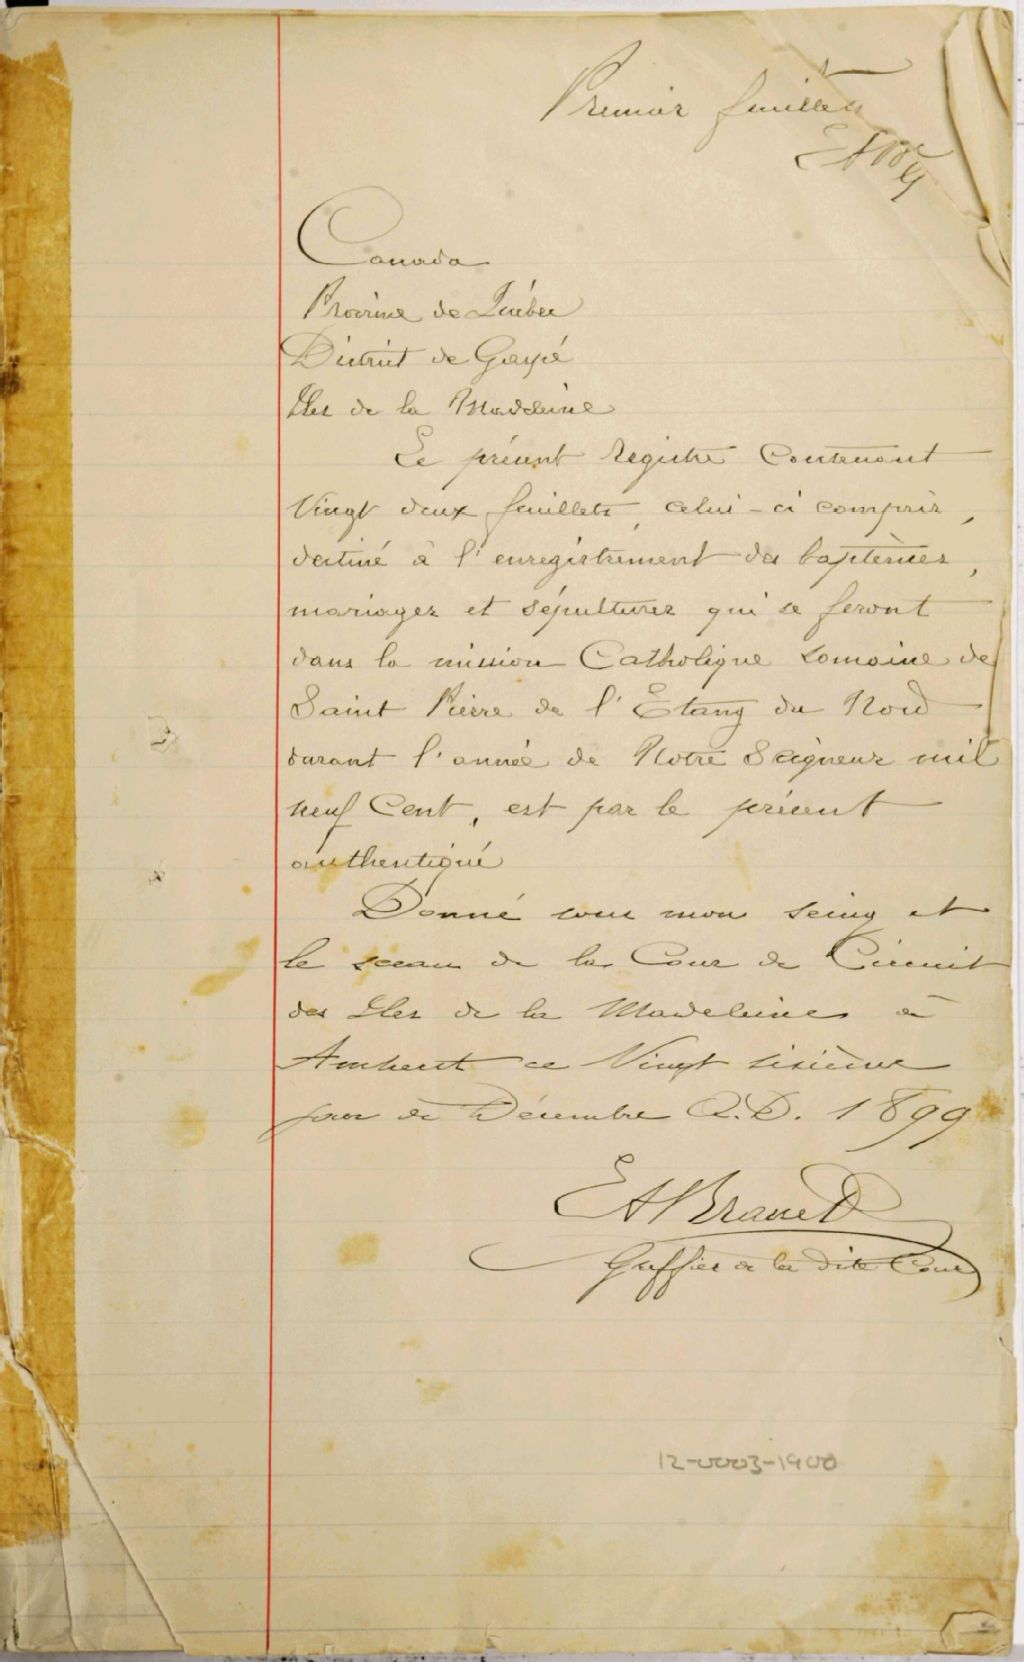 Premier feuillet
Canada
Province de Québec
District de Gaspé
Iles de la Madeleine
Le présent Registre Contenant
Vingt deux feuillets, celui-ci compris,
destiné à l'enregistrement des baptêmes,
mariages et sépultures qui se feront
dans la mission Catholique romaine de
Saint Pierre de l'Etang du Nord
durant l'année de Notre Seigneur mil
neuf Cent, est par le présent
authentiqué
Donné sous mon seing et
le sceau de la Cour de Circuit
des Iles de la Madeleine à
Amherst ce Vingt sixième
jour de Décembre A.D. 1899
E A Brasset
Greffier de la dite Cour
12-0003-1900